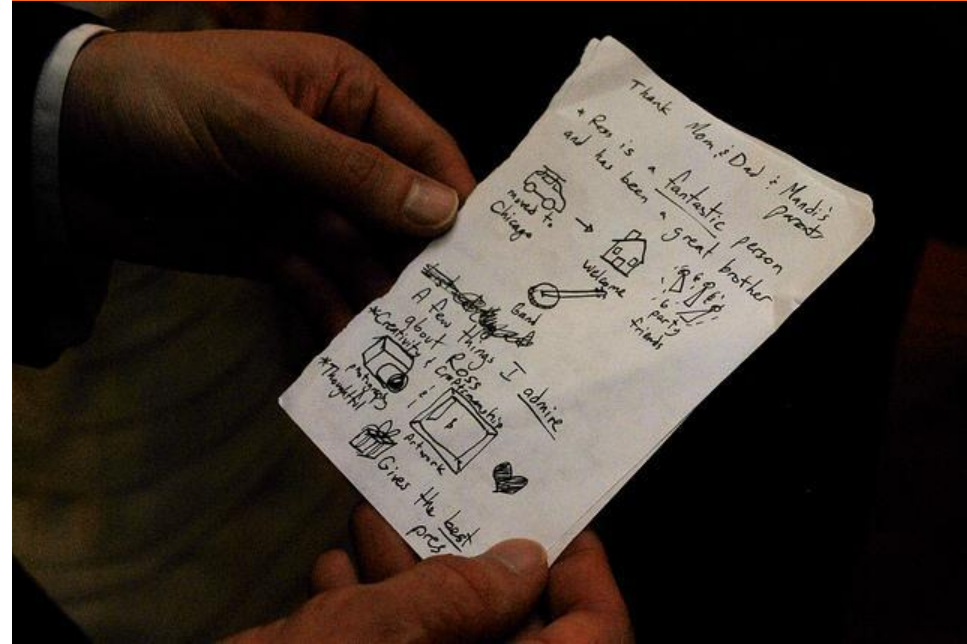 Thank Mom & Dad & Mandi's
parents
* Ross is a fantastic person
and has been a great brother
moved to
Chicago
welcome
party
friends
Band
A few things I admire
about Ross
*Creativity & Craftsmanship
photography
&
Artwork
*Thoughtful
Gives the best
pres